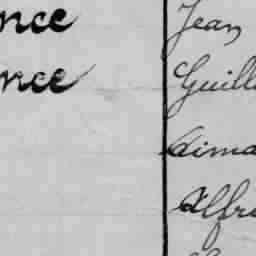 nce Jean
nce Guill
Aima
Alfre